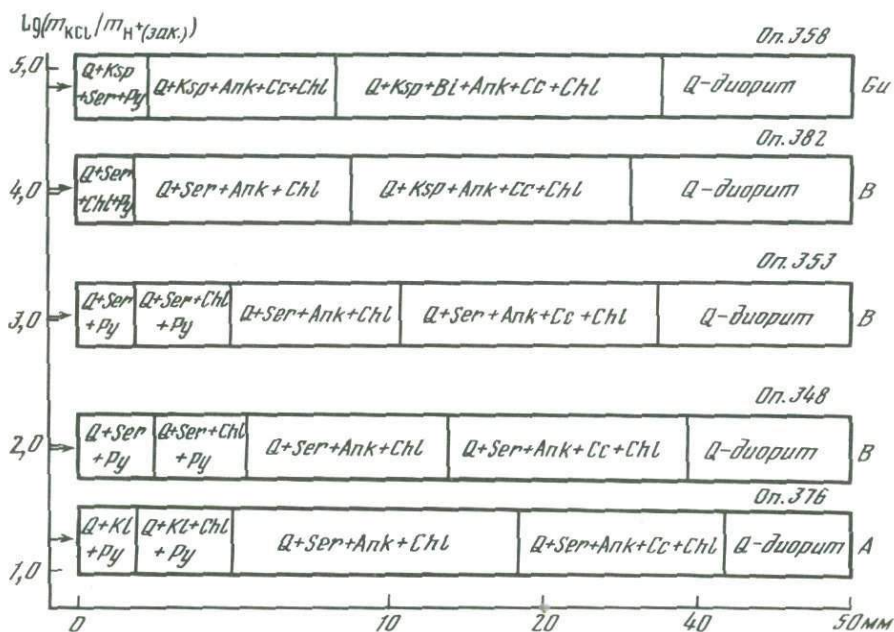 lg(mKCl/mH+(зак.))
Оп.358
5,0
Q+Ksp
+Ser+Py
Q+Ksp+Ank+Cc+Chl
Q+Ksp+Bi+Ank+Cc+Chl
Q-диорит
Gu
Оп.382
4,0
Q+Ser
+Chl+Py
Q+Ser+Ank+Chl
Q+Ksp+Ank+Cc+Chl
Q-диорит
B
Оп.353
3,0
Q+Ser
+Py
Q+Ser+Chl
+Py
Q+Ser+Ank+Chl
Q+Ser+Ank+Cc+Chl
Q-диорит
B
Оп.348
2,0
Q+Ser
+Py
Q+Ser+Chl
+Py
Q+Ser+Ank+Chl
Q+Ser+Ank+Cc+Chl
Q-диорит
B
Оп.376
1,0
Q+Kl
+Py
Q+Kl+Chl
+Py
Q+Ser+Ank+Chl
Q+Ser+Ank+Cc+Chl
Q-диорит
A
0 10 20 40 50мм